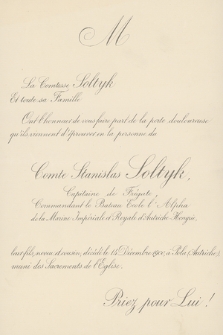 M
La Comtesse Soltyk
Et toute sa Famille
Ont l'honneur de vous faire part de la perte douloureuse
qu'ils viennent d'éprouver en la personne du
Comte Stanislas Soltyk,
Capitaine de Frégate,
Commandant le Bateau École l'Alpha
de la Marine Impériale & Royale d'Autriche-Hongrie,
leur fils, neveu et cousin, décédé le 15 Décembre 1900, à Pola (Autriche)
muni des Sacrements de l'Église.
Priez pour Lui!